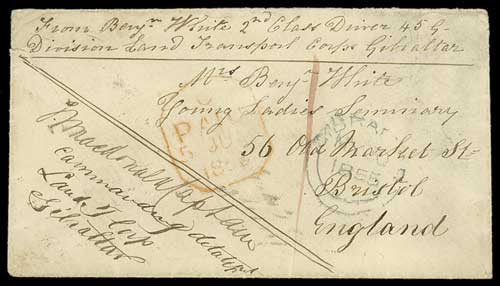 From Benjn White 2nd Class Driver 45 G-
Division Land Transport Corps Gibraltar
Mrs Benjn White
Young Ladies Seminary
56 Old Market St-
Bristol
England
J Macdonald Captain
Commanding detacht
Land T Corps
Gibraltar
PAID
5 JU